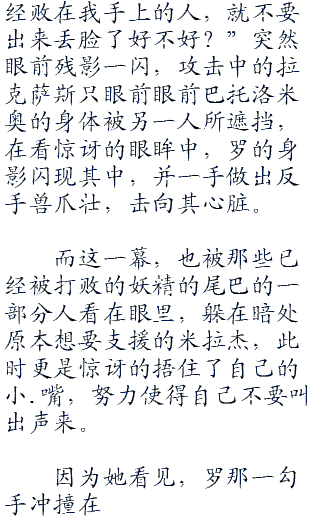 经败在我手上的人，就不要
出来丢脸了好不好？”突然
眼前残影一闪，攻击中的拉
克萨斯只眼前眼前巴托洛米
奥的身体被另一人所遮挡，
在看惊讶的眼眸中，罗的身
影闪现其中，并一手做出反
手兽爪壮，击向其心脏。
而这一幕，也被那些已
经被打败的妖精的尾巴的一
部分人看在眼里，躲在暗处
原本想要支援的米拉杰，此
时更是惊讶的捂住了自己的
小.嘴，努力使得自己不要叫
出声来。
因为她看见，罗那一勾
手冲撞在